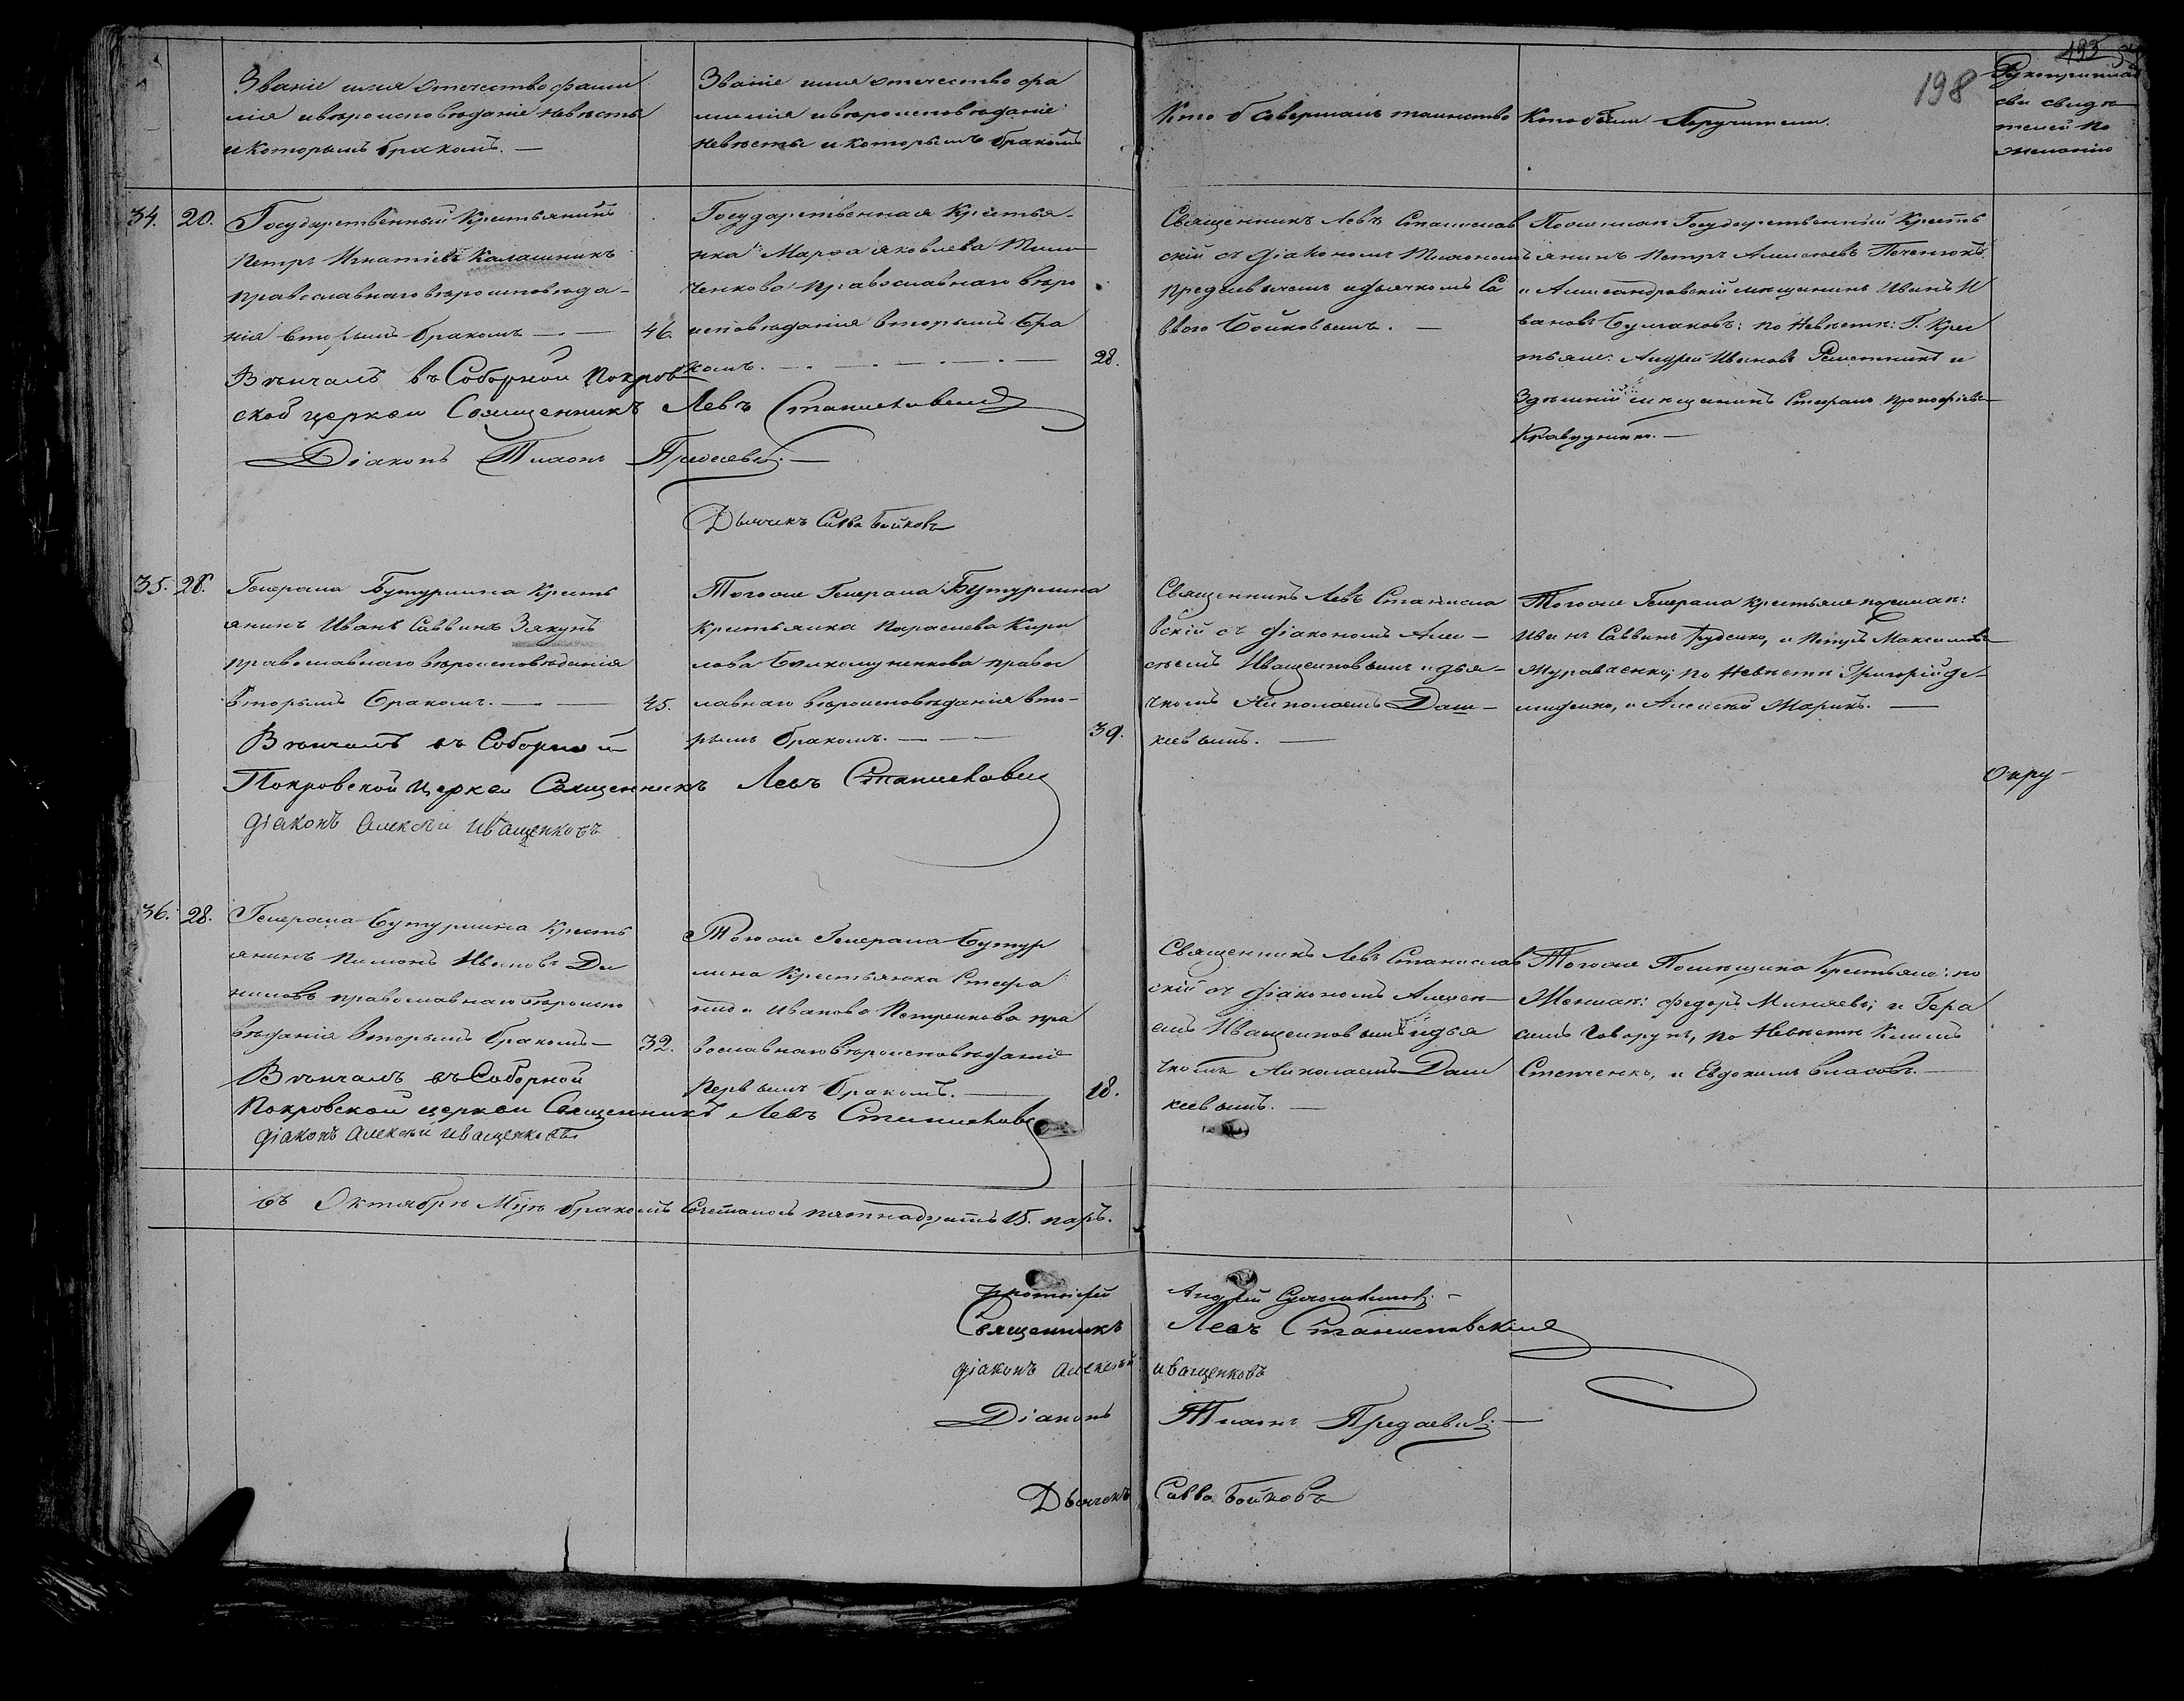 Званіе имя Отечество фами
лія и вѣроисповѣданіе невѣсты
и которымъ бракомъ. —
Званіе имя отечество фа
милія и вѣроисповѣданіе
невѣсты и которымъ бракомъ
Кто Совершалъ таинство
Кто были Поручители.
198
195
сви свидѣ
телей по
желанію
34.
20.
Государственный Крестьянинъ
Петръ Игнатіевъ Калашникъ
православнаго вѣроисповѣда-
нія вторымъ бракомъ —
46.
Вѣнчалъ въ Соборной Покров
ской церкви Священникъ Левъ
Діаконъ Тихонъ
Дьячекъ Савва Бойковъ
Государственная Крестья-
нка Марфа Яковлева
ченкова православнаго вѣро
исповѣданія вторымъ бра
комъ.
28.
Священникъ Левъ Станислав
скій съ діакономъ Тихономъ
и дьячкомъ Са
ввою Бойковымъ. —
Государственный Кресть
янинъ Петръ Алексѣевъ
и Александровскій мѣщанинъ Иванъ И
вановъ Булгаковъ: по Невѣстѣ: Г. Крес
тьяне: Андрей Ивановъ и
Здѣшній мѣщанинъ Стефанъ Прокофіевъ
35.
28.
Генерала Бутурлина Кресть
янинъ Иванъ Саввинъ Зякунъ
православнаго вѣроисповѣданія
вторымъ бракомъ. —
45.
Вѣнчалъ въ Соборной
Покровской церкви Священникъ Левъ
діаконъ Алексѣй Иващенковъ
Тогоже Генерала Бутурлина
Крестьянка Параскева Кири
лова правос
лавнаго вѣроисповѣданія вто-
рымъ бракомъ. —
39.
Священникъ Левъ Станисла
вскій съ діакономъ Алек-
сѣемъ Иващенковымъ и дья-
чкомъ Николаемъ Даш-
кевымъ. —
Тогоже Генерала крестьяне
Иванъ Саввинъ и Петръ Максимовъ
по Невѣстѣ Григорій Де-
и Алексѣй Марикъ. —
Окру-
36.
28.
Генерала Бутурлина Кресть
янинъ Пимонъ Ивановъ Да
ниловъ православнаго вѣроиспо
вѣданія вторымъ бракомъ —
32.
Вѣнчалъ въ Соборной
Покровской церкви Священникъ Левъ
діаконъ Алексѣй Иващенковъ
Тогоже Генерала Бутур
лина Крестьянка Стефа
нида Иванова Петренкова пра
вославнаго вѣроисповѣданіе
первымъ бракомъ. —
18.
Священникъ Левъ Станислав
скій съ діакономъ Алексѣ
емъ Иващенковымъ и дья
чкомъ Николаемъ Даш
кевымъ. —
Тогоже Помѣщика Крестьяне: по
Женихѣ: Федоръ Миняевъ; и Гера
симъ Говорунъ, по Невѣстѣ Климъ
Степченко, и Евдокимъ Власовъ. —
въ Октябрѣ Мцѣ бракомъ Сочеталось пятнадцать 15. паръ.
Протоіерей Андрей
Священникъ Левъ Станиславскій
діаконъ Алексѣй Иващенковъ
Діаконъ Тихонъ
Дьячекъ Савва Бойковъ